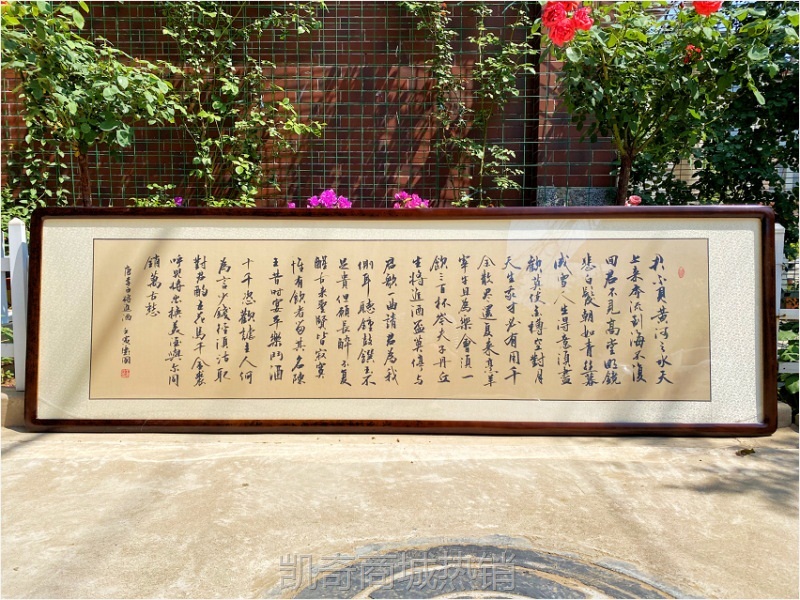 君不見黃河之水天
上来奔流到海不復
回君不見高堂明鏡
悲白髮朝如青絲暮
成雪人生得意須盡
歡莫使金樽空對月
天生我才必有用千
金散盡還复来烹羊
宰牛且為樂會須一
飲三百杯岑夫子丹丘
生將進酒盃莫停与
君歌一曲請君為我
側耳聽鐘鼓饌玉不
足貴但願長醉不复
醒古来聖賢皆寂寞
惟有飲者留其名陳
王昔時宴平樂斗酒
十千恣歡謔主人何
為言少錢徑須沽取
對君酌五花馬千金裘
呼兒將出換美酒與尔同
銷萬古愁
唐李白將進酒
凯奇商城热销